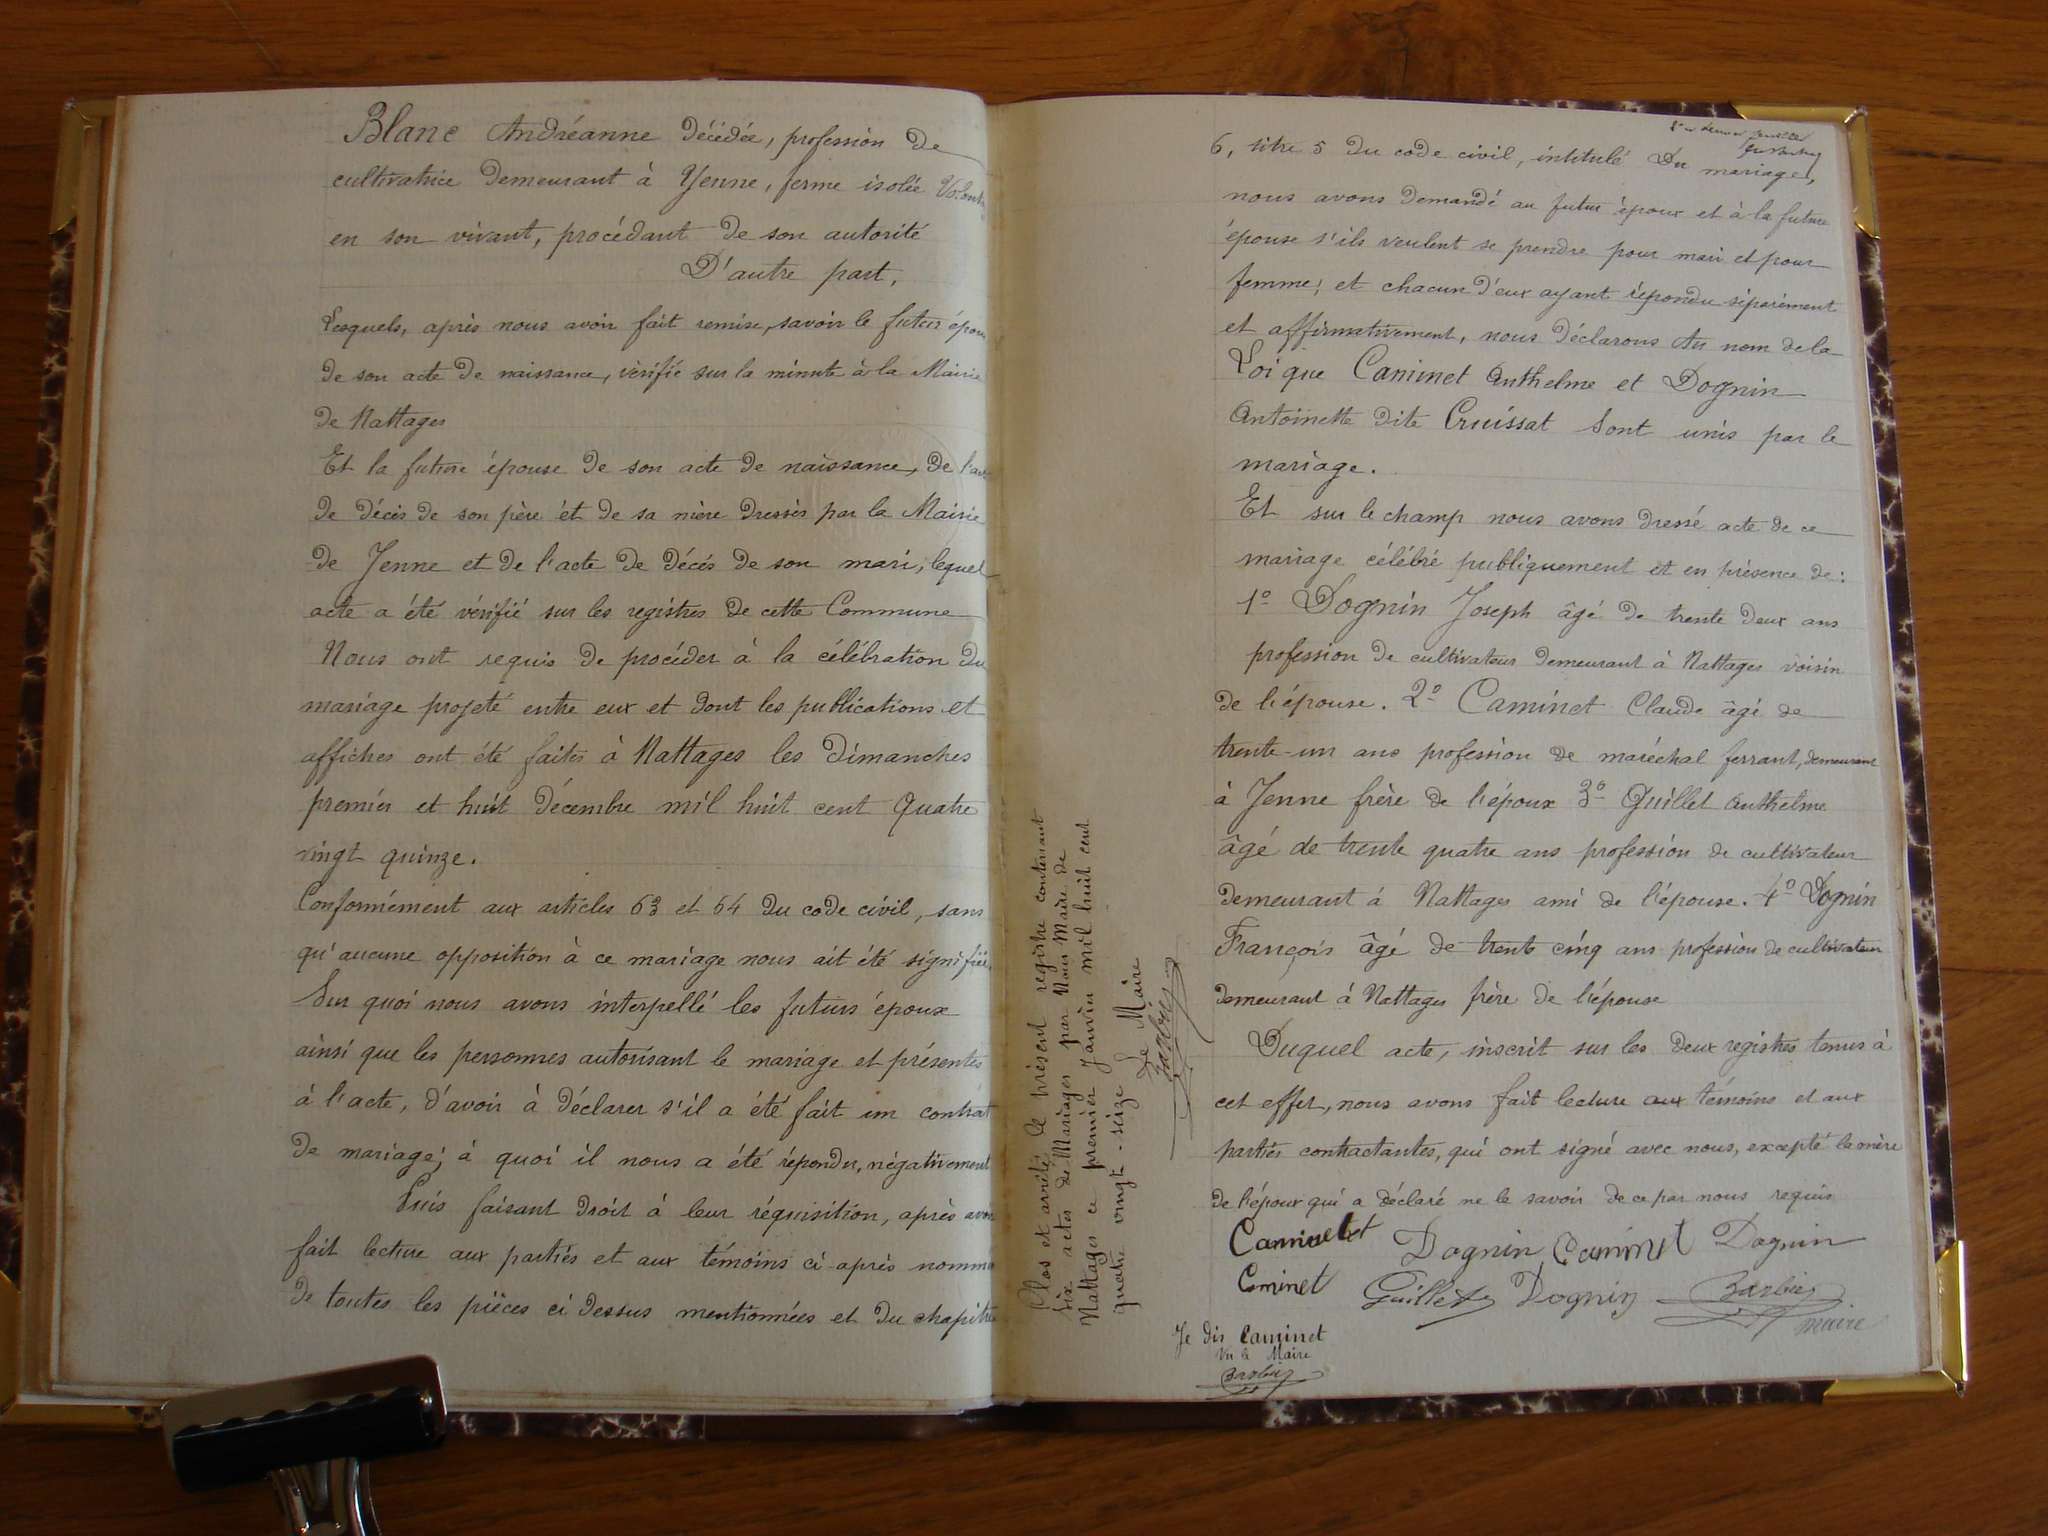 Blanc Andréanne décédée, profession de
cultivatrice demeurant à Yenne, ferme isolée
en son vivant, procédant de son autorité
D'autre part,
Lesquels, après nous avoir fait remise, savoir le futur épou
de son acte de naissance, vérifié sur la minute à la Mairie
de Nattages
Et la future épouse de son acte de naissance, de l'ac
de décès de son père et de sa mère dressés par la Mairie
de Jenne et de l'acte de décés de son mari, lequel
acte a été vérifié sur les registres de cette Commune
Nous ont requis de procéder à la célébration du
mariage projeté entre eux et dont les publications et
affiches ont été faites à Nattages les dimanches
premier et huit décembre mil huit cent quatre
vingt quinze.
Conformément aux articles 63 et 64 du code civil, sans
qu'aucune opposition à ce mariage nous ait été signifiée
Sur quoi nous avons interpellé les futurs époux
ainsi que les personnes autorisant le mariage et présentes
à l'acte, d'avoir à déclarer s'il a été fait un contrat
de mariage; à quoi il nous a été répondu, négativement
Puis faisant droit à leur réquisition, après avoir
fait lecture aux parties et aux témoins ci-après nommé
de toutes les pièces ci dessus mentionnées et du chapitre
Clos et arrêté le présent registre contenant
six actes de Mariages par Nous Maire de
Nattages ce premier Janvier mil huit cent
quatre vingt-seize
Le Maire
Barbier
6, titre 5 du code civil, intitulé Du mariage,
nous avons demandé au futur époux et à la future
épouse s'ils veulent se prendre pour mari et pour
femme; et chacun d'eux ayant répondu séparément
et affirmativement, nous déclarons Au nom de la
Loi que Caminet Anthelme et Dognin
Antoinette dite Cruissat sont unis par le
mariage.
Et sur le champ nous avons dressé acte de ce
mariage célébré publiquement et en présence de:
1º Dognin Joseph âgé de trente deux ans
profession de cultivateur demeurant à Nattages voisin
de l'épouse. 2º Caminet Claude âgé de
trente-un ans profession de maréchal ferrant, demeurant
à Jenne frère de l'époux 3º Guillet Anthelme
âgé de trente quatre ans profession de cultivateur
demeurant à Nattages ami de l'épouse. 4º Dognin
François âgé de trente cinq ans profession de cultivateur
demeurant à Nattages frère de l'épouse
Duquel acte, inscrit sur les deux registres tenus à
cet effet, nous avons fait lecture aux témoins et aux
parties contractantes, qui ont signé avec nous, excepté la mère
de l'époux qui a déclaré ne le savoir de ce par nous requis
Dognin Caminet Dognin
Cminet Guillet Dognin Barbier
maire
Je dis Caminet
Vu le Maire
Barbier